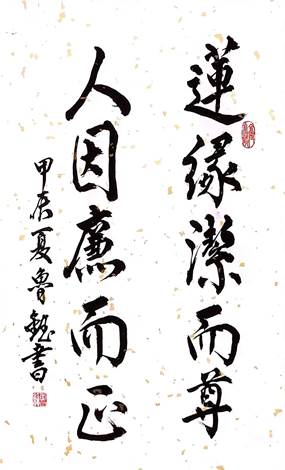 蓮緣潔而尊
人因廉而正
甲辰夏魯銳書